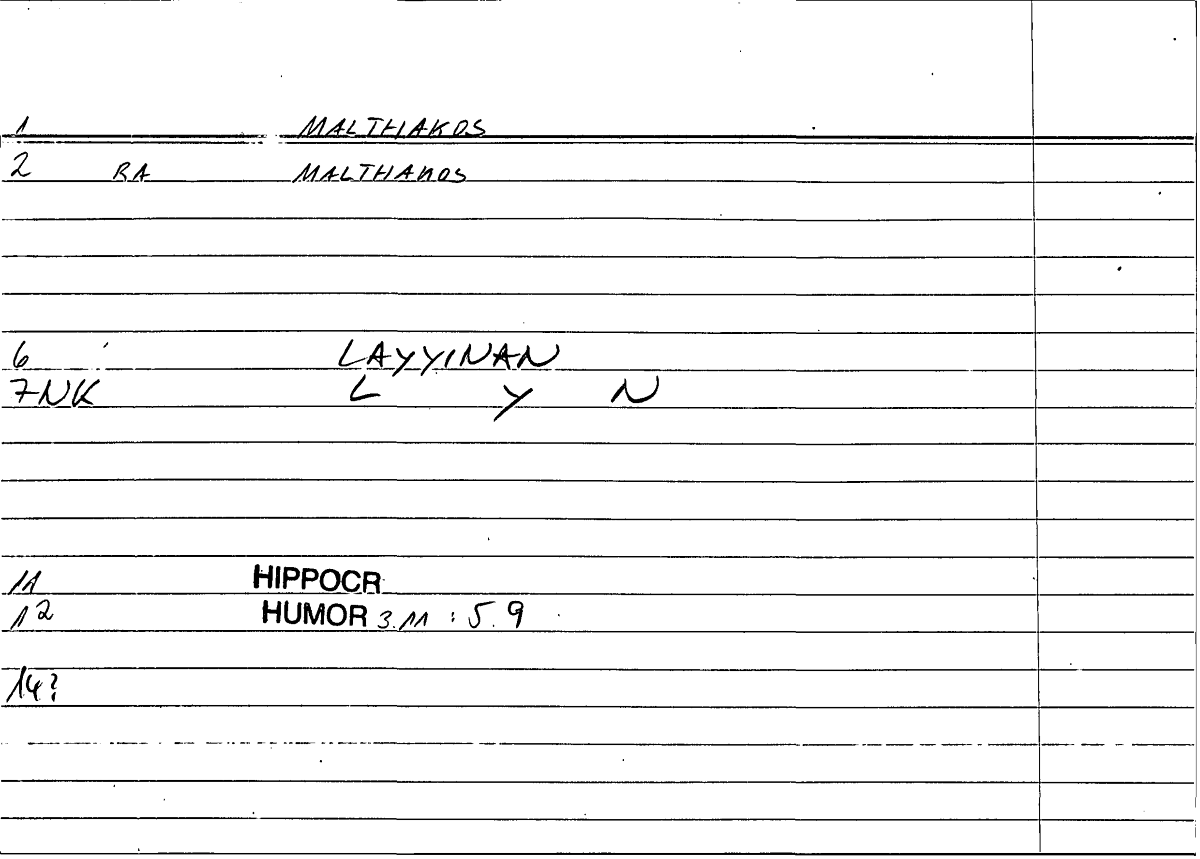 1 MALTHAKOS
2 RA MALTHAKOS
6 LAYYINAN
7NK L Y N
11 HIPPOCR
12 HUMOR 3.11 : 5.9
14?